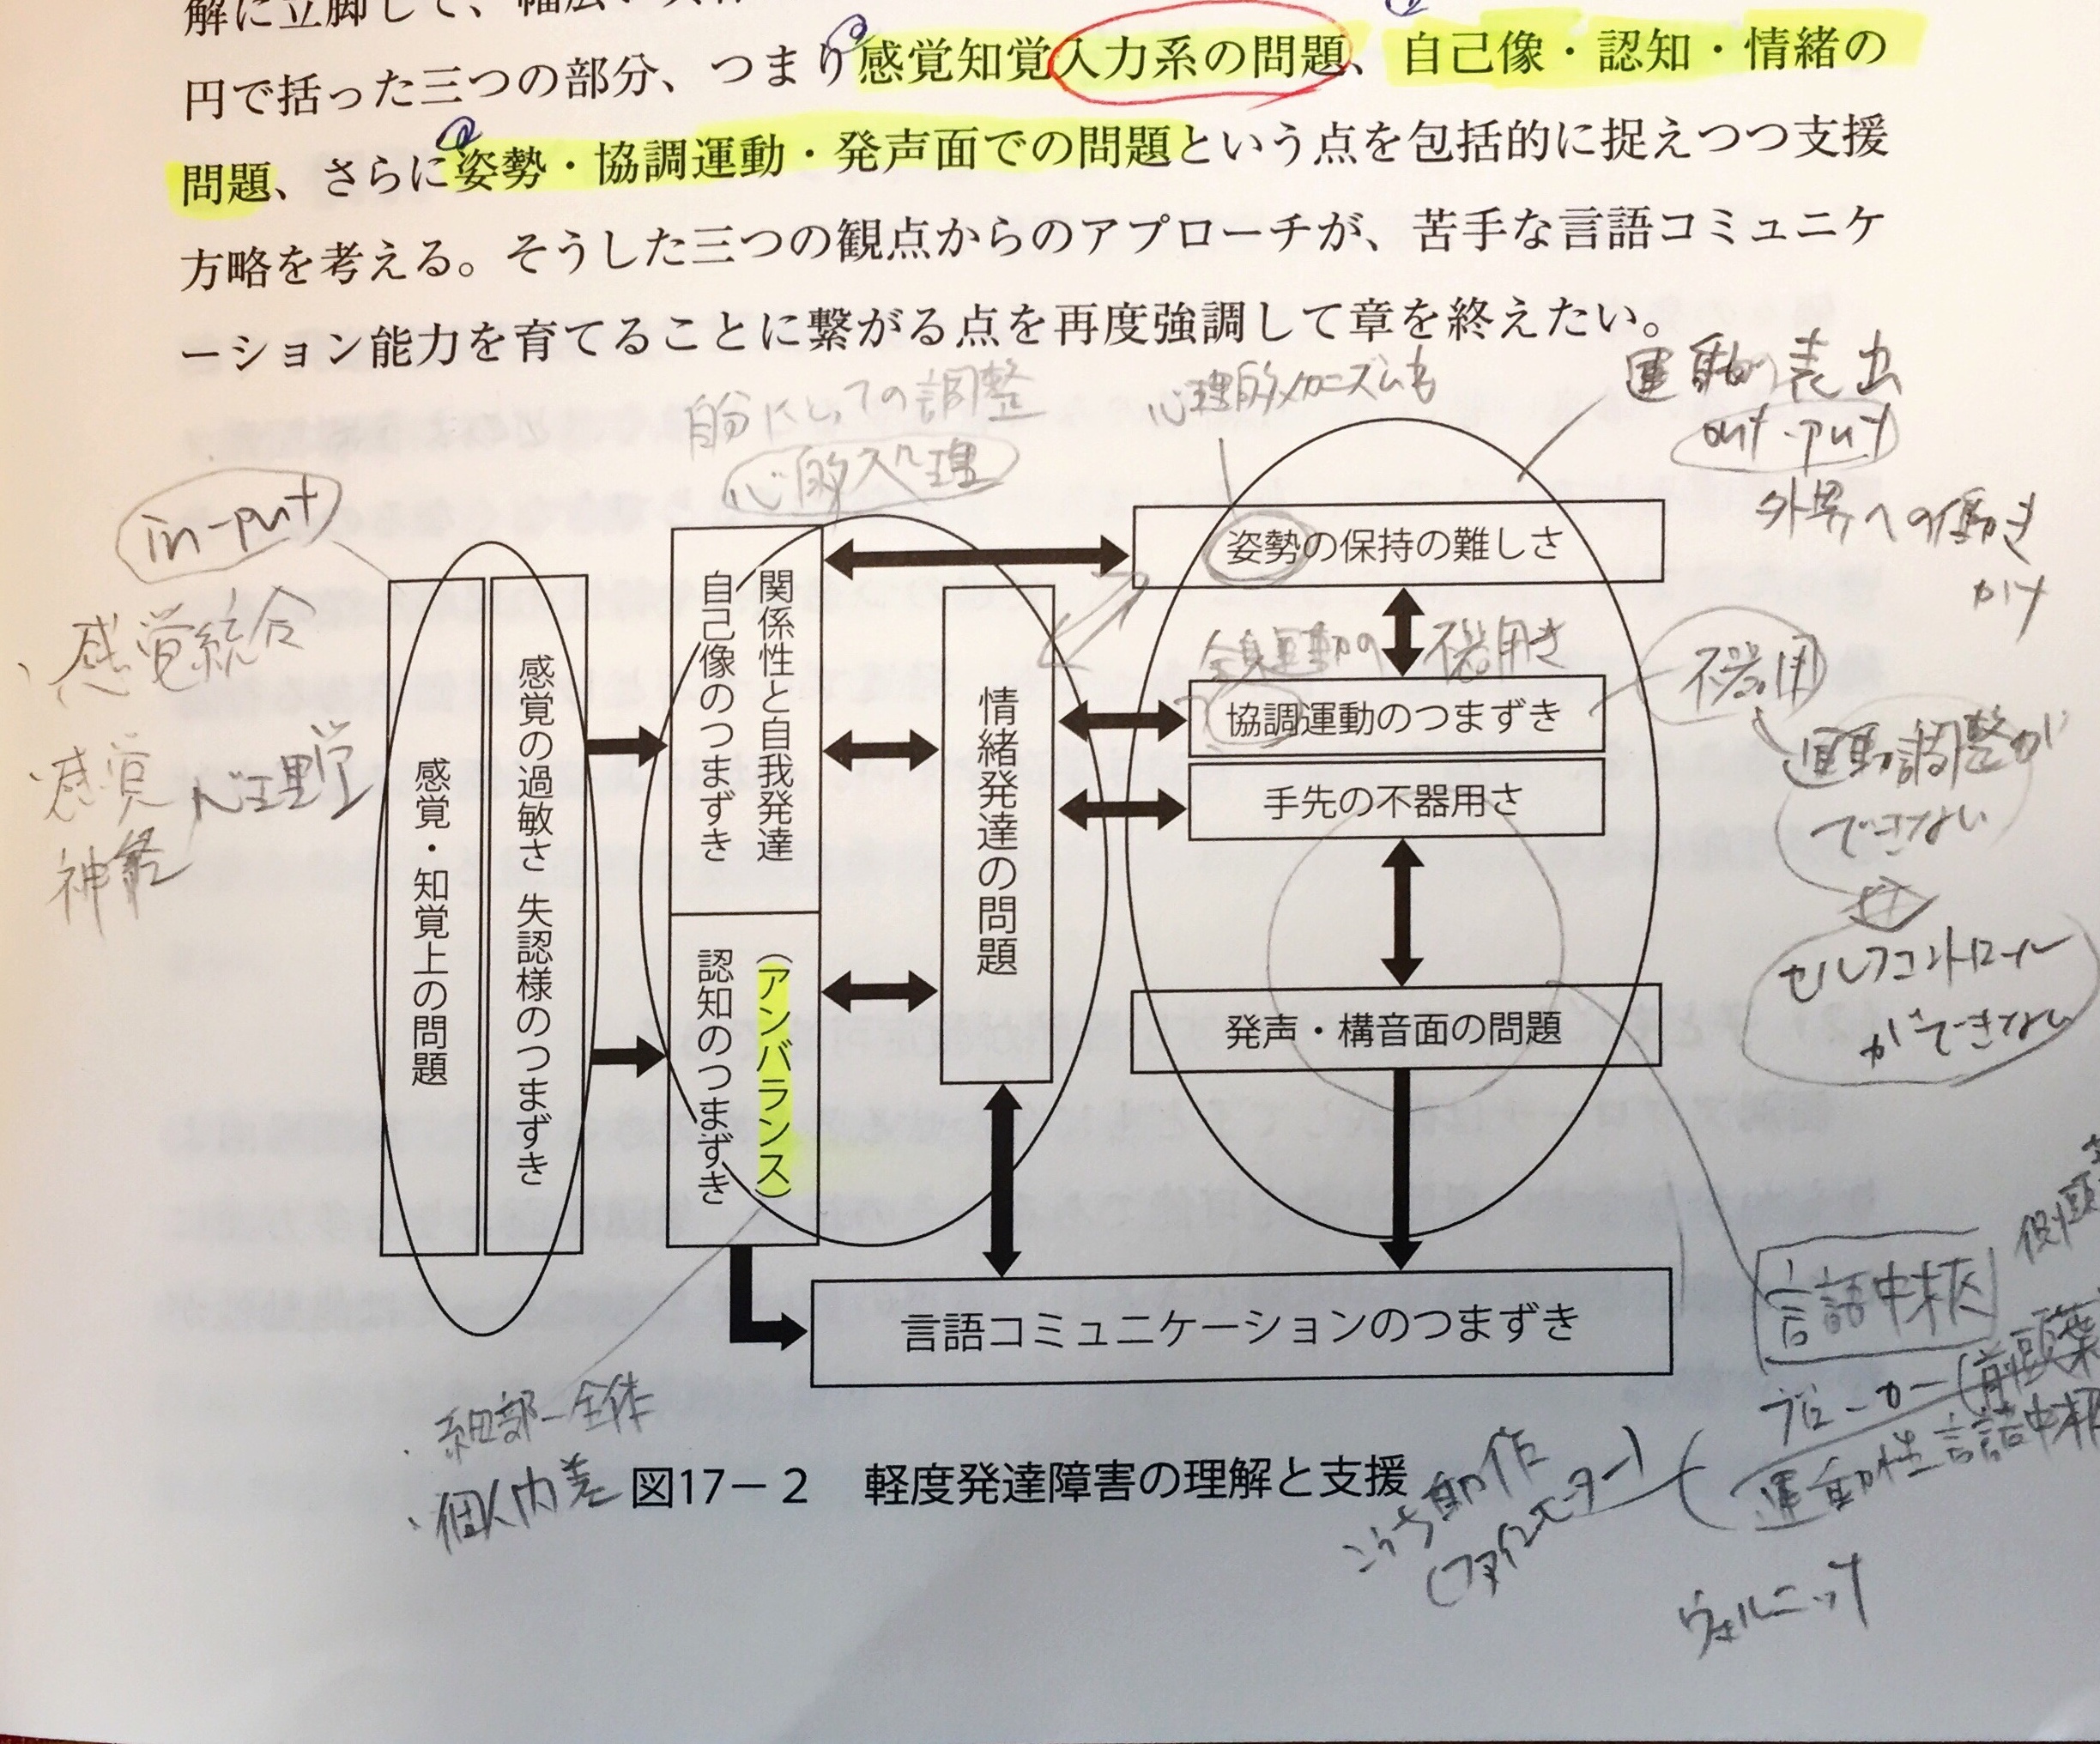 解に立脚して、幅広い
円で括った三つの部分、つまり感覚知覚入力系の問題、自己像・認知・情緒の
問題、さらに姿勢・協調運動・発声面での問題という点を包括的に捉えつつ支援
方略を考える。そうした三つの観点からのアプローチが、苦手な言語コミュニケ
ーション能力を育てることに繋がる点を再度強調して章を終えたい。
in-put
・感覚統合
・感覚心理学
神経
自分にとっての調整
心的処理
心理的メカニズムも
運動的表出
out-put
外界への働き
かけ
感覚・知覚上の問題
感覚の過敏さ 失認様のつまずき
関係性と自我発達
自己像のつまずき
(アンバランス)
認知のつまずき
情緒発達の問題
姿勢の保持の難しさ
全身運動の不器用さ
協調運動のつまずき
手先の不器用さ
発声・構音面の問題
言語コミュニケーションのつまずき
不器用
運動調整が
できない
セルフコントロール
ができない
側頭
言語中枢
ブローカー(前頭葉
運動性言語中枢
ヴェルニッケ
こうち動作
(ファインモーター)
・細部-全体
・個人内差
図17－2 軽度発達障害の理解と支援